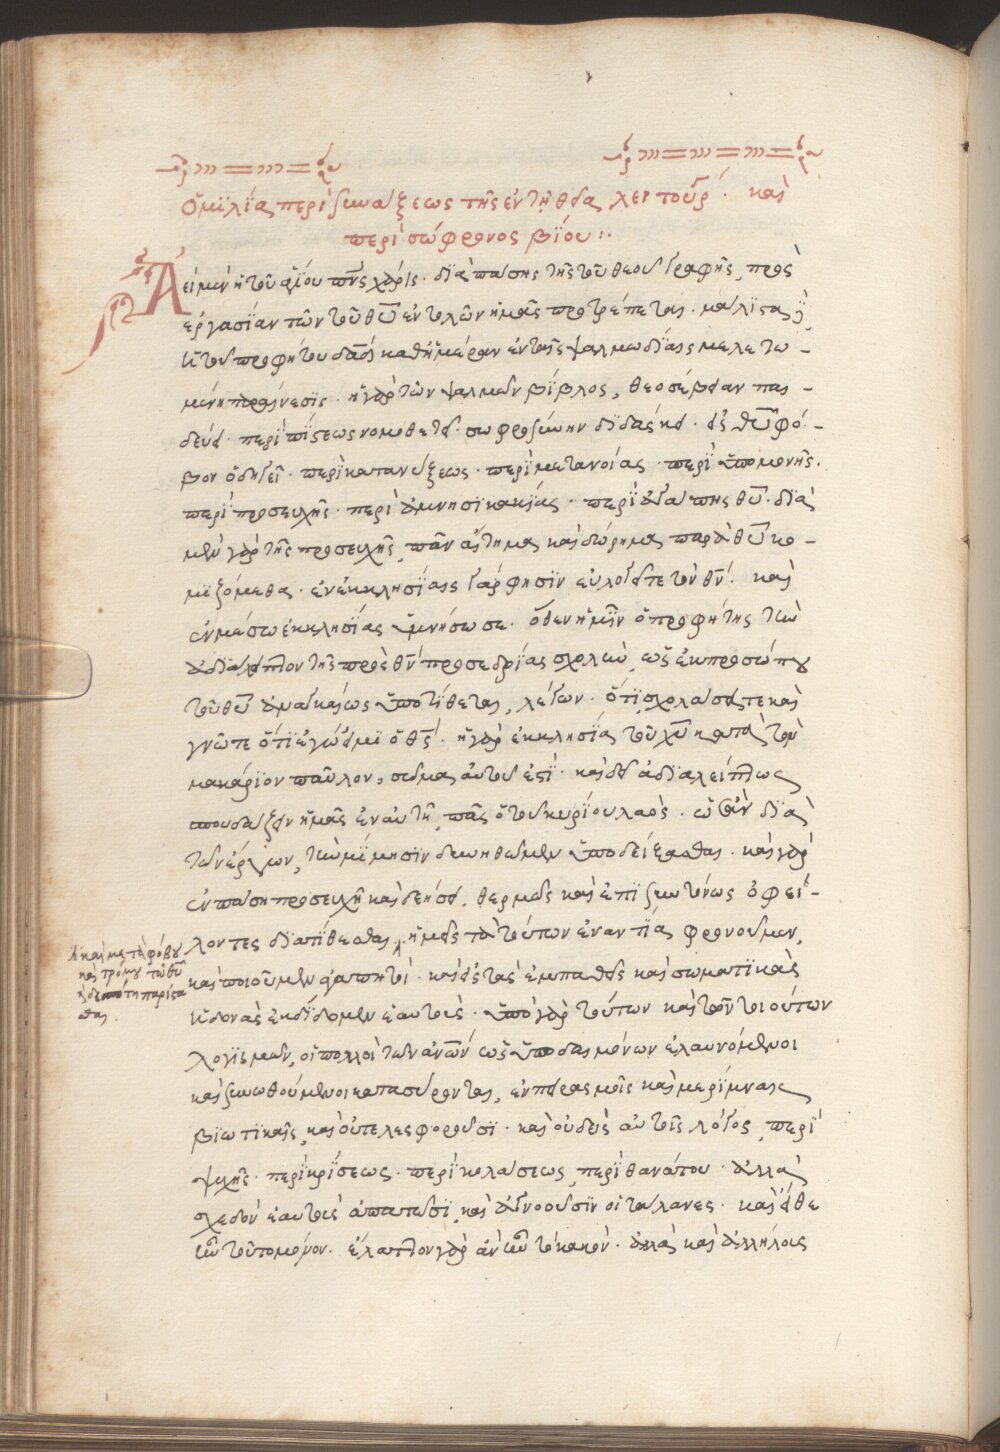 Ὁμιλία περὶ συνάξεως τῆς ἐν τῇ θεία λειτουργ΄. καὶ
περὶ σώφρονος βίου:·
Ἀεὶ μὲν ἡ τοῦ ἁγίου πν̅ς χάρις. διὰ πάσης τῆς τοῦ θεοῦ γραφῆς, πρὸς
ἐργασίαν τῶν τοῦ θυ̅ ἐντολῶν ἡμᾶς προτρέπεται. μάλιστα
ἡ τοῦ προφήτου δα̅δ καθ' ἡμέραν ἐν ταῖς ψαλμωδίαις μελετω-
μένη παραίνεσις. ἡ γὰρ τῶν ψαλμῶν βίβλος, θεοσέβειαν παι-
δεύει. περὶ πίστεως νομοθετεῖ. σωφροσύνην διδάσκει. εἰς θυ̅ φό-
βον ὁδηγεῖ. περὶ κατανύξεως. περὶ μετανοίας. περὶ ὑπομονῆς.
περὶ προσευχῆς. περὶ ἀμνησικακίας. περὶ ἀγάπης θυ̅. διὰ
μὲν γὰρ τῆς προσευχῆς, πᾶν αἴτημα καὶ δώρημα παρὰ θυ̅ κο-
μιζόμεθα. ἐν ἐκκλησίαις γάρ φησιν εὐλογεῖτε τὸν θν̅. καὶ
ἐν μέσω ἐκκλησίας ὑμνήσω σε. ὅθεν ἡμῖν ὁ προφήτης τὴν
ἀδιάλειπτον τῆς πρὸς θν̅ προσεδρίας σχολὴν, ὡς ἐκ προσώπου
τοῦ θυ̅ ἀναγκαίως ὑποτίθεται, λέγων. ὅτι σχολάσατε καὶ
γνῶτε ὅτι ἐγώ εἰμι ὁ θς̅. ἡ γὰρ ἐκκλησία τοῦ χυ̅ κατὰ τὸν
μακάριον παῦλον, σῶμα αὐτοῦ ἐστί. καὶ δεῖ ἀδιαλείπτως
σπουδάζειν ἡμᾶς ἐν αὐτῆ, πᾶς ὁ τοῦ κυρίου λαὸς. διὰ
τῶν ἔργων, τὴν μίμησιν δεινηθῶμεν ὑποδείξασθαι. καὶ γὰρ
ἐν πάση προσευχῆ καὶ δεήσει, θερμῶς καὶ ἐπισυντόνως ὀφεί-
λοντες διατίθεσθαι, ἡμεῖς τὰ τούτων ἐναντία φρονοῦμεν,
καὶ ποιοῦμεν ἀγαπητοί. καὶ εἰς τὰς ἐμπαθεῖς καὶ σωματικὰς
ἡδονὰς ἐκδίδομεν ἑαυτοὺς. ὑπὸ γὰρ τούτων καὶ τῶν τοιούτων
λογισμῶν, οἱ πολλοὶ τῶν ἀνω̅ν ὡς ὑπὸ δαιμόνων ἐλαυνόμενοι
καὶ συνωθούμενοι κατασύρονται, ἐν πειρασμοῖς καὶ μερίμναις
βιωτικαῖς, καὶ οὐ τελεσφοροῦσι. καὶ οὐδεὶς αὐτοῖς λόγος, περὶ
ψυχῆς. περὶ κρίσεως. περὶ κολάσεως, περὶ θανάτου. ἀλλὰ
σχεδὸν ἑαυτοὺς ἀπατῶσι, καὶ ἀγνοοῦσιν οἱ τάλανες. καὶ εἴθε
ἦν τοῦτο μόνον. ἔλαττον γὰρ ἂν ἦν τὸ κακὸν. ἀλλὰ καὶ ἀλλήλοις
καὶ μετὰ φόβου
καὶ τρόμου τῶ θυ̅
δεσπότη παρίστα
σθαι.